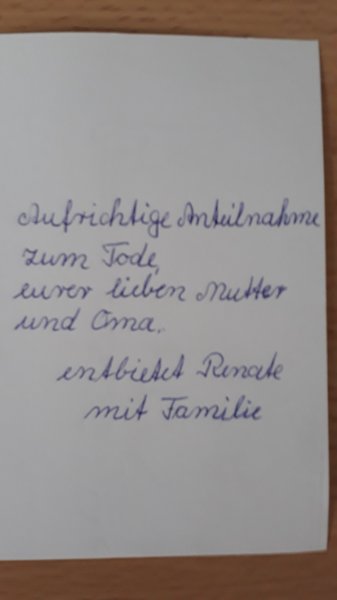 Aufrichtige Anteilnahme
zum Tode,
eurer lieben Mutter
und Oma,
entbietet Renate
mit Familie